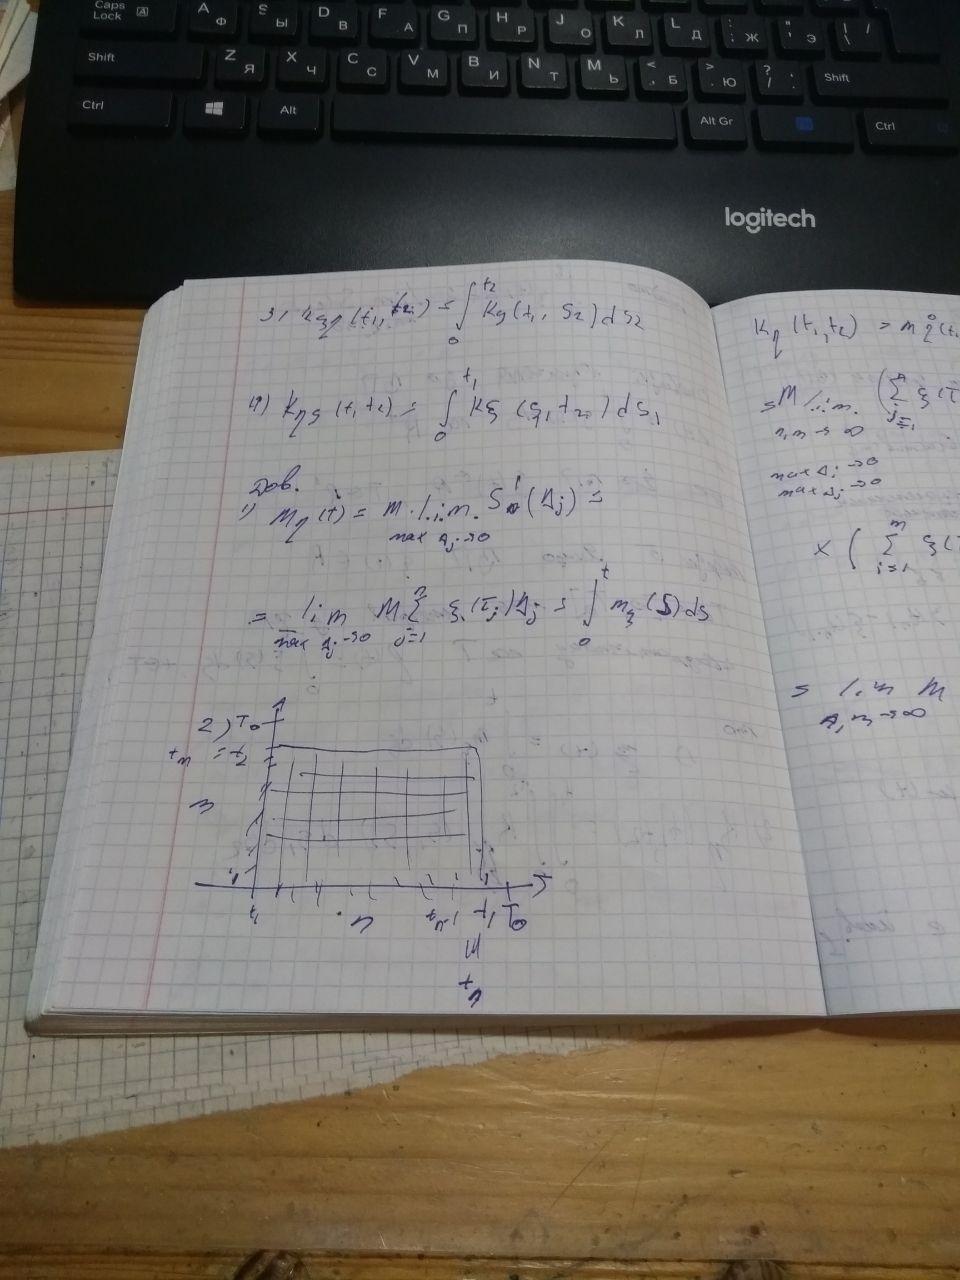 Caps Lock A A Ф S Ы D В F А G П H Р J О K Л L Д : ; Ж " ' Э | \ /
Shift Z Я X Ч C С V М B И N Т M Ь < , Б > . Ю ? / : . Shift
Ctrl Alt Alt Gr Ctrl
logitech
3) K_{ξη}(t_1, t_2) = ∫_0^{t_2} K_ξ(t_1, S_2) dS_2
4) K_{ηξ}(t_1, t_2) = ∫_0^{t_1} K_ξ(S_1, t_2) dS_1
Дов.
1) M_η(t) = M l.i.m._{max Δ_j → 0} S_n(Δ_j) =
= lim_{max Δ_j → 0} M Σ_{j=1}^{n} ξ(τ_j) Δ_j = ∫_0^t m_ξ(S) dS
2) T_0
t_m = t_2
m
t_1 n t_{n-1} t_1 T_0
t_n
K_η(t_1, t_2) = M
= M l.i.m. (Σ_{j=1}^{n} ξ(τ
n, m → ∞
max Δ_j → 0
max Δ_i → 0
× (Σ_{i=1}^{m} ξ(τ
= lim M
n, m → ∞